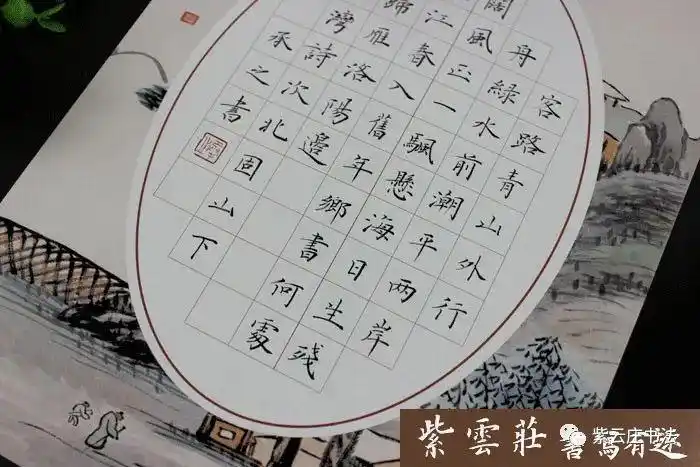 客路青山外行
舟綠水前潮平兩岸
闊風正一颿懸海日生殘
江春入舊年鄉書何處
歸雁洛陽邊
灣詩次北固山下
承之書
紫雲莊 書寫有趣
紫云庄书法